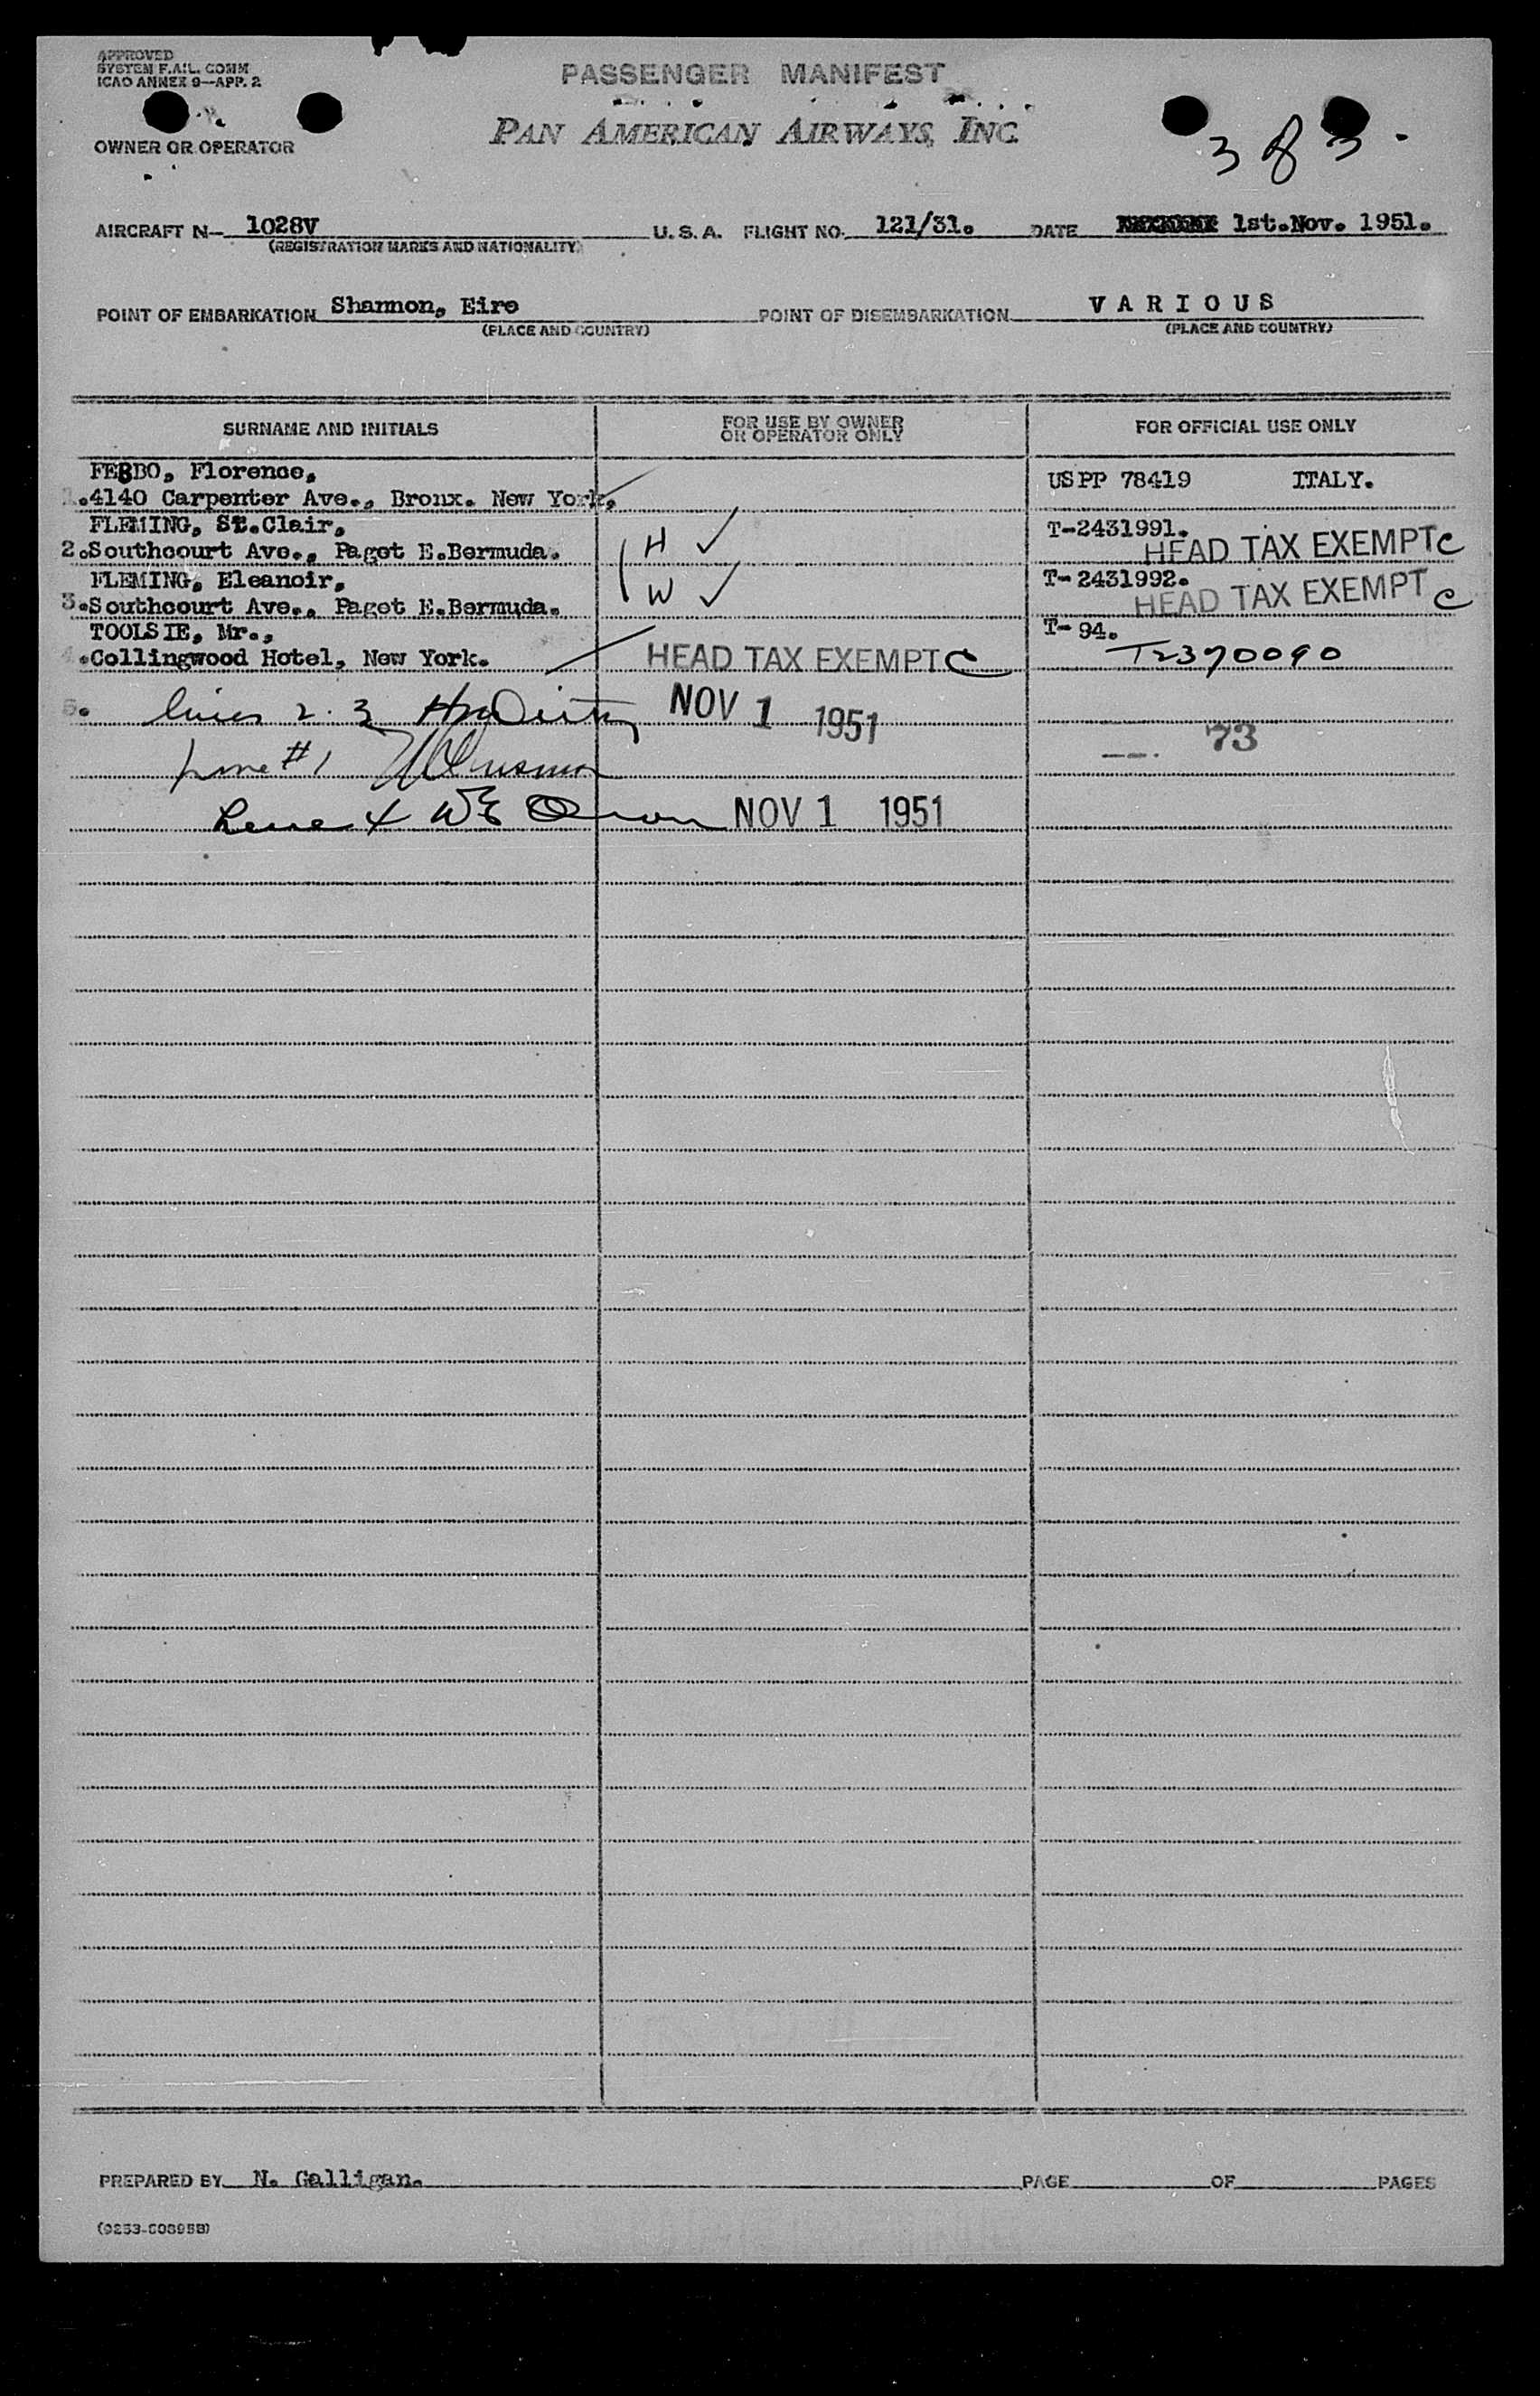 APPROVED
SYSTEM F.A.L. COMM
ICAO ANNEX 9—APP. 2
PASSENGER MANIFEST
OWNER OR OPERATOR
PAN AMERICAN AIRWAYS, INC.
3 of 3.
AIRCRAFT N— 1028V U. S. A. FLIGHT NO. 121/31. DATE 1st.Nov. 1951.
(REGISTRATION MARKS AND NATIONALITY)
POINT OF EMBARKATION Shannon, Eire POINT OF DISEMBARKATION V A R I O U S
(PLACE AND COUNTRY) (PLACE AND COUNTRY)
SURNAME AND INITIALS FOR USE BY OWNER OR OPERATOR ONLY FOR OFFICIAL USE ONLY
FEBBO, Florence,
1.4140 Carpenter Ave., Bronx. New York, USPP 78419 ITALY.
FLEMING, St.Clair, T-2431991.
2.Southcourt Ave., Paget E.Bermuda. H ✓ HEAD TAX EXEMPT C
FLEMING, Eleanoir, T-2431992.
3.Southcourt Ave., Paget E.Bermuda. W ✓ HEAD TAX EXEMPT C
TOOLSIE, Mr., T-94.
4.Collingwood Hotel, New York. HEAD TAX EXEMPT C T2370090
5. lines 2. 3 NOV 1 1951
73
line #1
Line 4 WE NOV 1 1951
PREPARED BY N. Galligan. PAGE OF PAGES